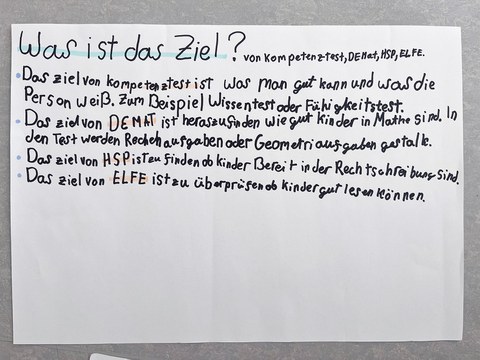 Was ist das Ziel? von Kompetenztest, DEMAT, HSP, ELFE.
Das ziel von kompetenztest ist was man gut kann und was die
Person weiß. Zum Beispiel Wissentest oder Fühigkeitstest.
Das ziel von DEMAT ist heraszufinden wie gut kinder in Mathe sind. In
den Test werden Rechenausgaben oder Geometriausgaben gestalk.
Das ziel von HSP ist zu finden ob kinder Bereit in der Rechtschreibung sind.
Das ziel von ELFE ist zu überprüfen ob kinder gut lesen können.